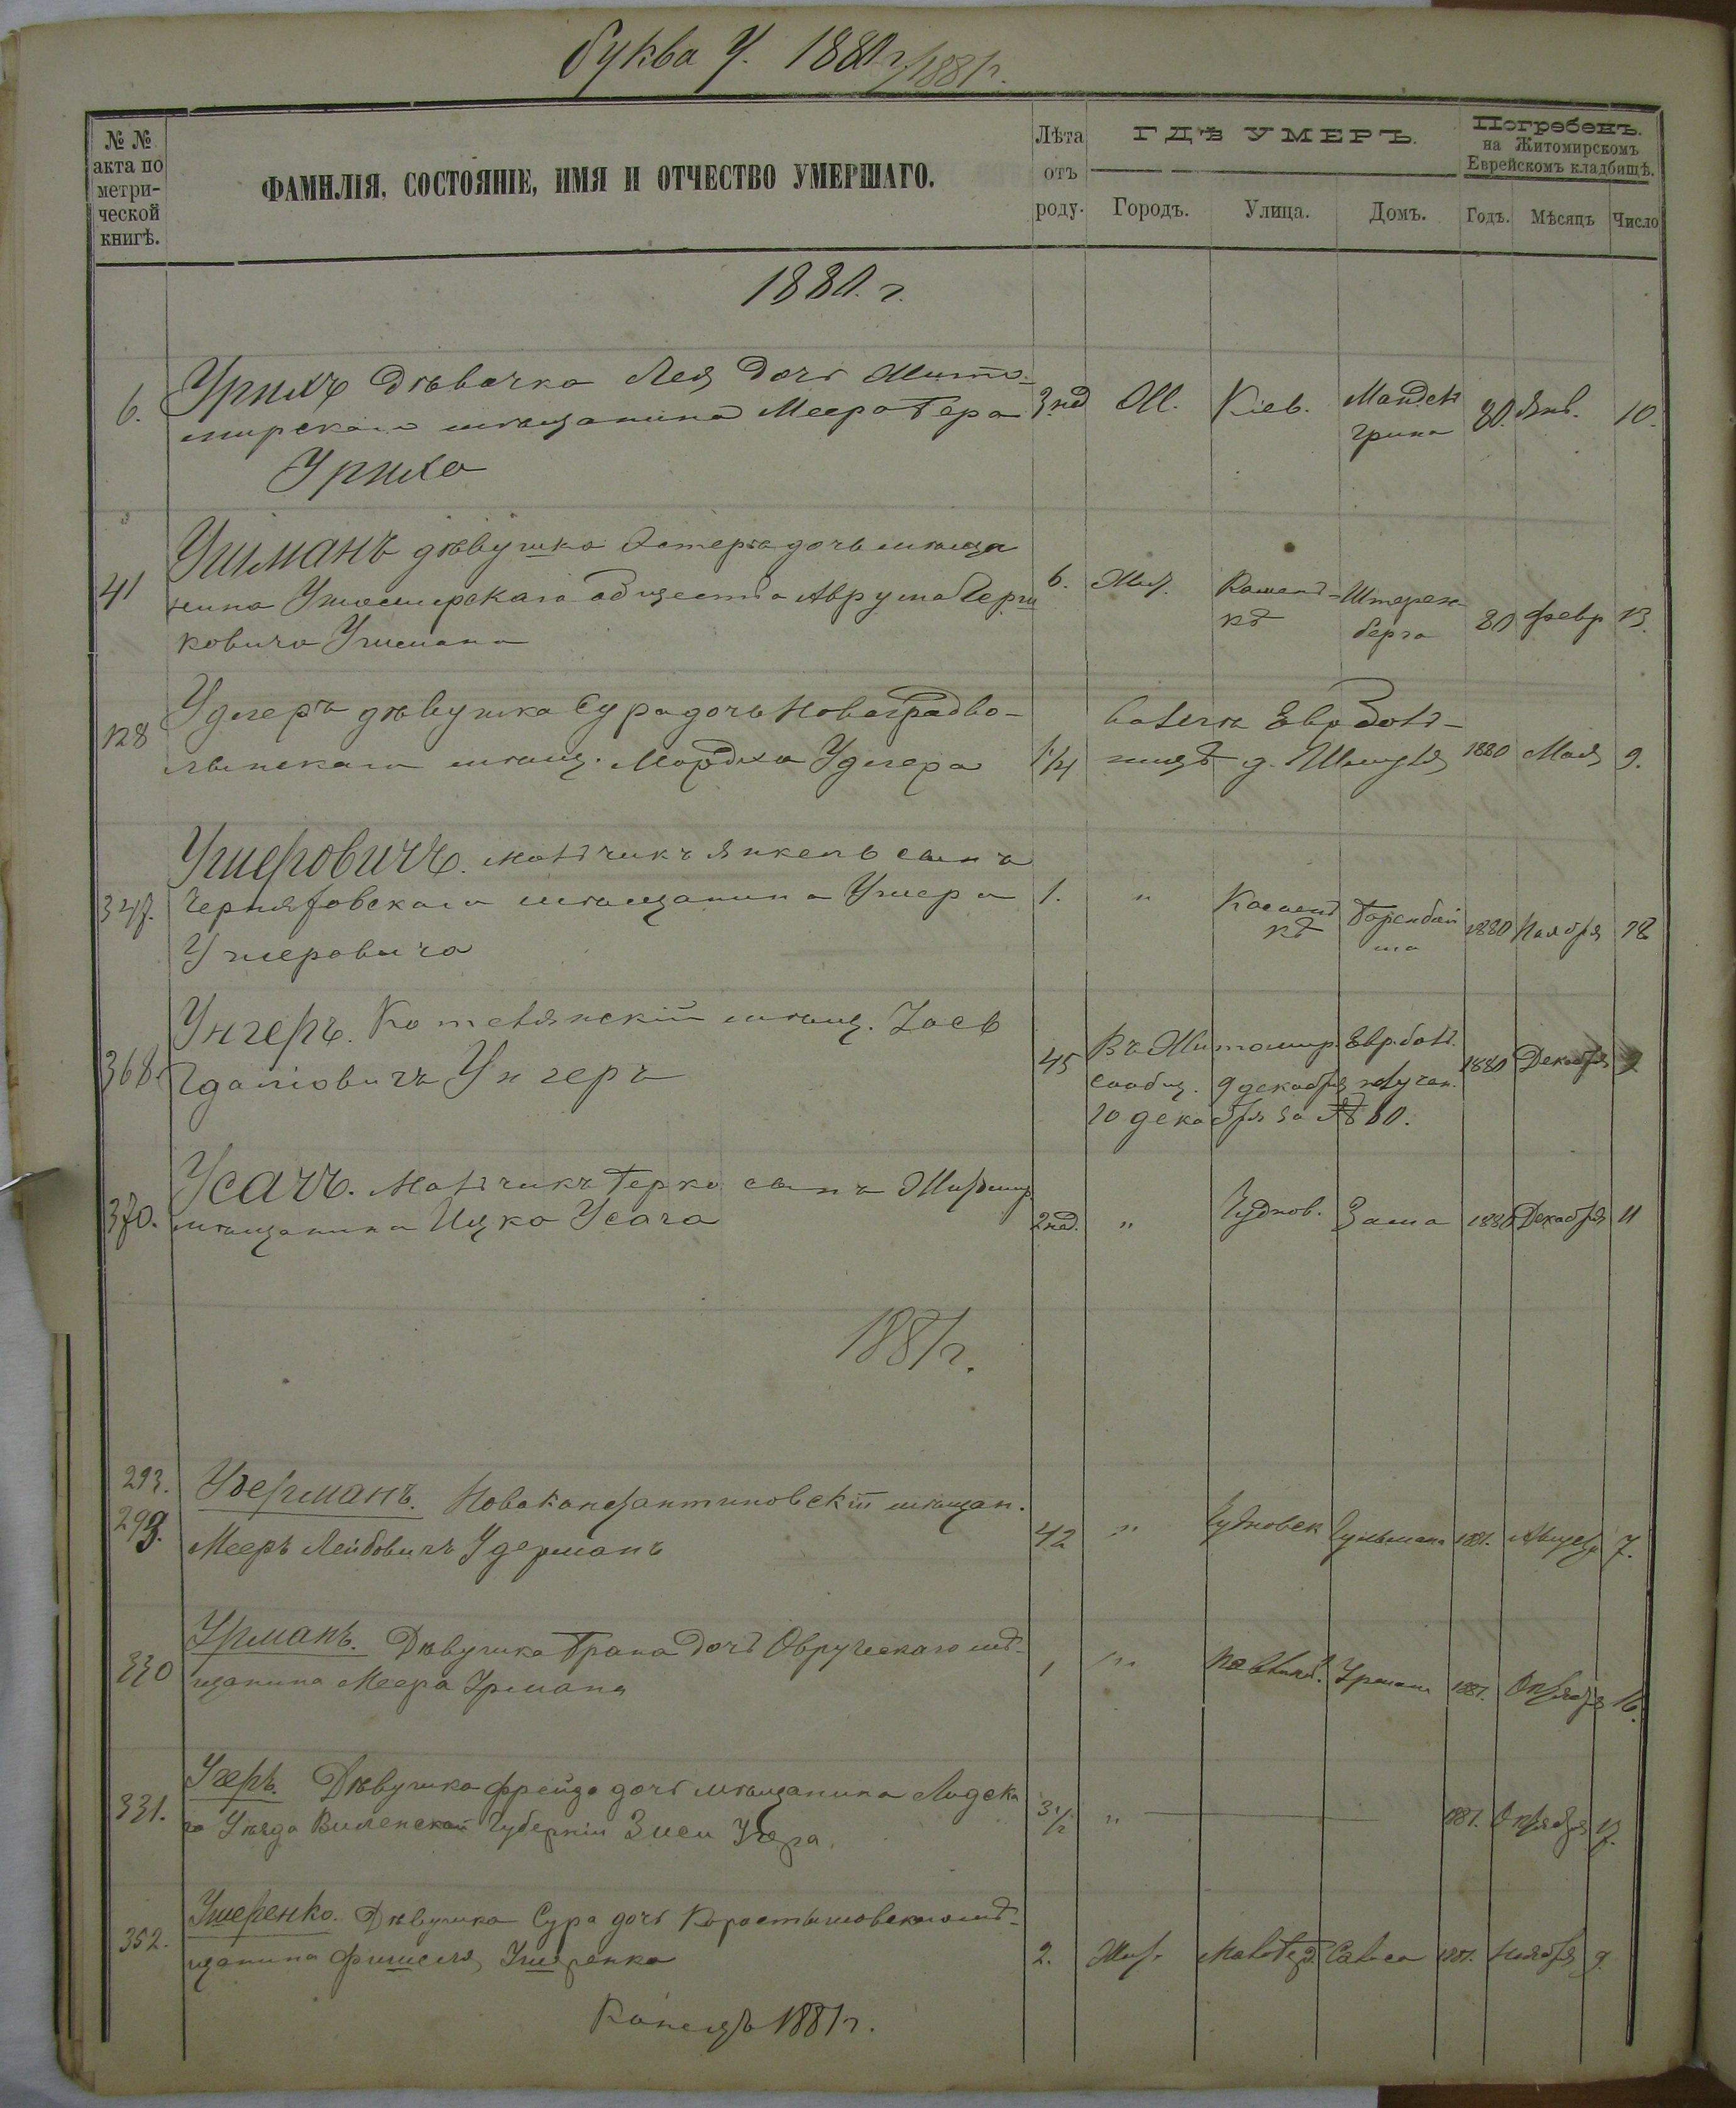 буква У. 1880г/1881г.
№ №
акта по
метри-
ческой
книгѣ.
ФАМИЛІЯ, СОСТОЯНІЕ, ИМЯ И ОТЧЕСТВО УМЕРШАГО.
Лѣта
отъ
роду.
ГДѢ УМЕРЪ.
Городъ.
Улица.
Домъ.
Погребенъ.
на Житомирскомъ
Еврейскомъ кладбищѣ.
Годъ.
Мѣсяцъ
Число
1880. г.
6. Урихъ дѣвочка Лея дочь Жито-
мирскаго мѣщанина Меера Бера
Уриха
3 нед Ж. Кіев. 80. Янв. 10.
41 Ушманъ дѣвушка дочь мѣща
нина Ушомирскаго общества Аврума Берш
ковича Ушмана
6. Жит. Штерен-
берга 80 февр 13.
128 Удлеръ дѣвушка Сура дочь Новоградво-
лынскаго мѣщ. Мордка Удлера
1880 Мая 9.
347. Ушеровичъ. мальчикъ Янкель сынъ
Черняховскаго мѣщанина Ушера
Ушеровича
1. " 1880 Ноября 18
368. Унгеръ. Котельнскій мѣщ. Іось
Гдаліовичъ Унгеръ
45 Въ Житомир. Евр. бол.
сообщ. 9 декабря получен.
10 декабря за № 80.
1880 Декабря 9
370. Усачъ. мальчикъ Берко сынъ Житомир
мѣщанина Ицко Усача
2 нед. " Чуднов. Зама 1880 Декабря 11
1881г.
293.
293. Удерманъ. Новоконстантиновскій мѣщан.
Мееръ Лейбовичъ Удерманъ
42 " Чудновск 1881. Августа 7.
330 Урманъ. Дѣвушка Брана дочь Овручскаго мѣ-
щанина Меера Урмана
1 " Урмана 1881. Октября 16.
331. Угеръ. Дѣвушка Фрейда дочь мѣщанина Лидска
го Уѣзда Виленской Губерніи Зиси Угера.
3 1/2 " 1881. Октября 17.
352. Ушеренко. Дѣвушка Сура дочь Коростышовскаго мѣ-
щанина Фишеля Ушеренка
2. Жит. 1881. Ноября 9.
Конецъ 1881г.